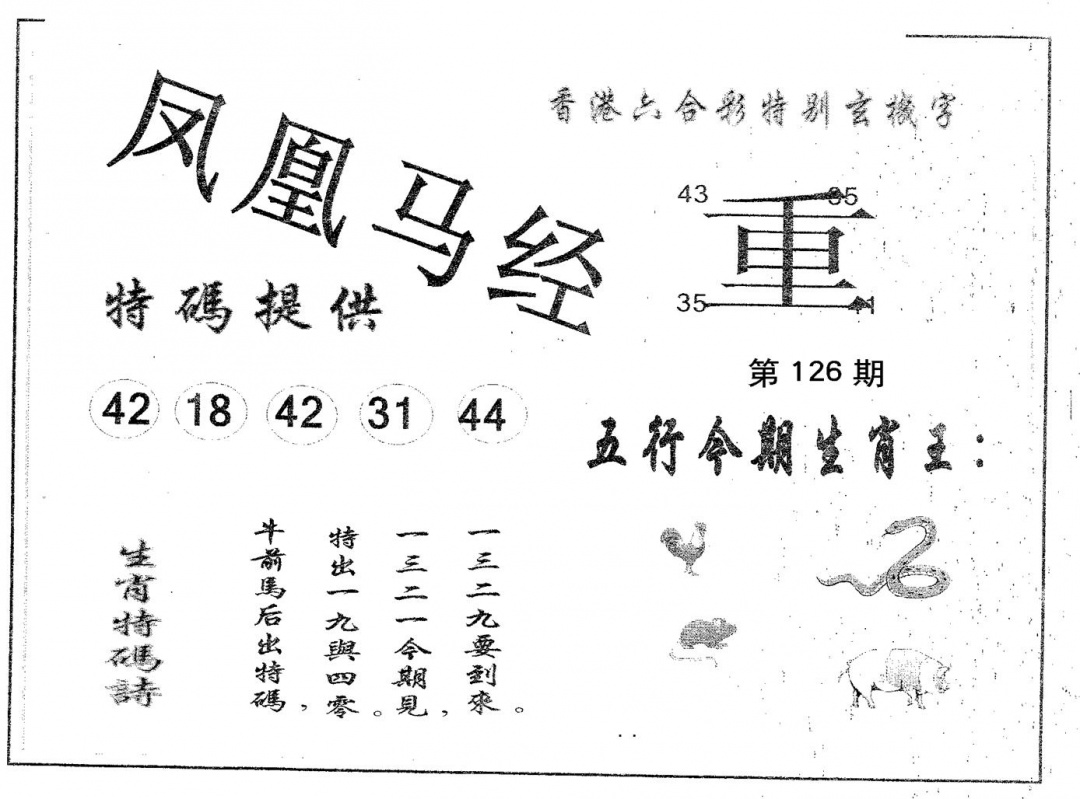 凤凰马经
香港六合彩特别玄機字
43
重
35
特碼提供
第126期
42 18 42 31 44
五行今期生肖王：
生肖特碼詩
牛前馬后出特碼，
特出一九與四零。
一三二一今期見，
一三二九要到來。